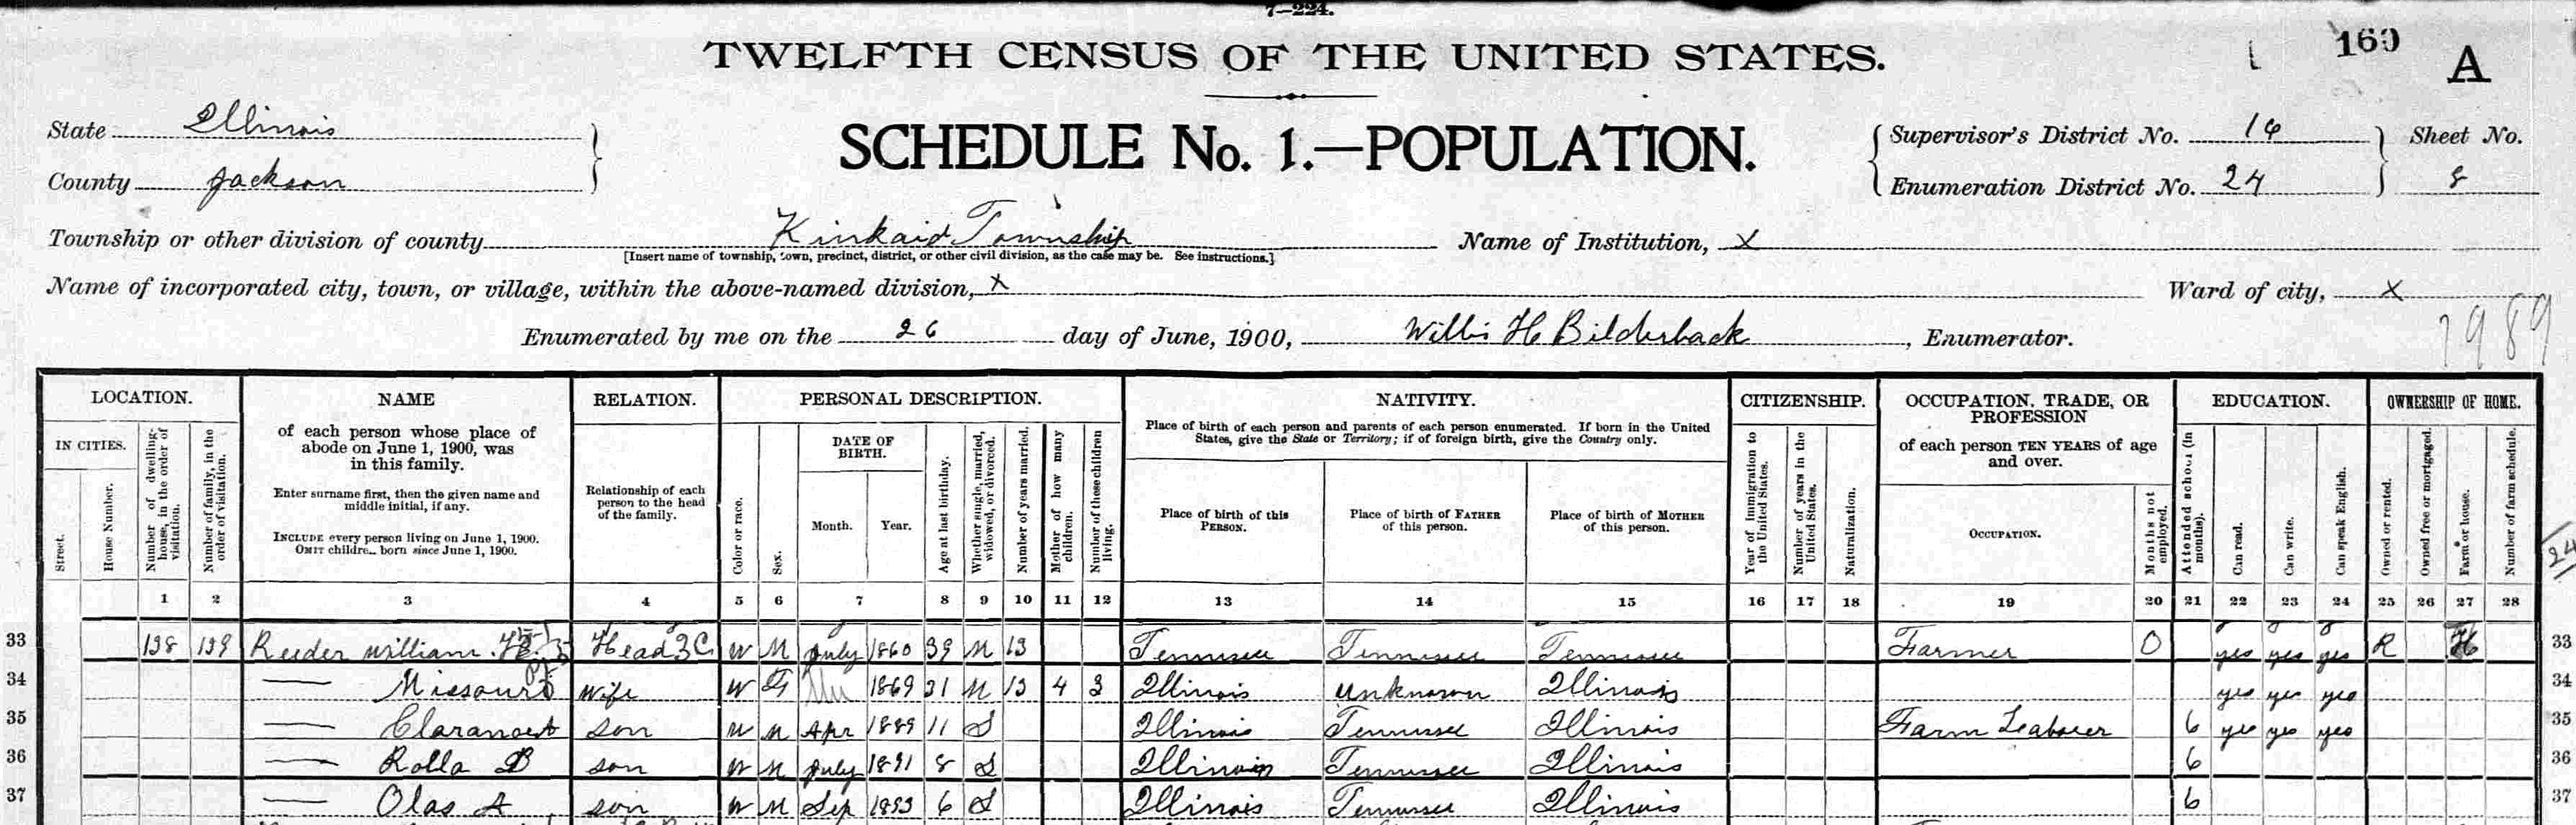 7—224.
TWELFTH CENSUS OF THE UNITED STATES.
160 A
State Illinois
County Jackson
SCHEDULE No. 1.—POPULATION.
Supervisor's District No. 16
Enumeration District No. 24
Sheet No.
8
Township or other division of county Kinkaid Township
[Insert name of township, town, precinct, district, or other civil division, as the case may be. See instructions.]
Name of Institution, X
Name of incorporated city, town, or village, within the above-named division, X
Ward of city, X
Enumerated by me on the 26 day of June, 1900, Willis H Bilderback, Enumerator.
7989
LOCATION.
IN CITIES.
Street.
House Number.
Number of dwelling-house, in the order of visitation.
Number of family, in the order of visitation.
NAME
of each person whose place of
abode on June 1, 1900, was
in this family.
Enter surname first, then the given name and
middle initial, if any.
INCLUDE every person living on June 1, 1900.
OMIT children born since June 1, 1900.
RELATION.
Relationship of each
person to the head
of the family.
PERSONAL DESCRIPTION.
Color or race.
Sex.
DATE OF
BIRTH.
Month. Year.
Age at last birthday.
Whether single, married, widowed, or divorced.
Number of years married.
Mother of how many children.
Number of these children living.
NATIVITY.
Place of birth of each person and parents of each person enumerated. If born in the United
States, give the State or Territory; if of foreign birth, give the Country only.
Place of birth of this
PERSON.
Place of birth of FATHER
of this person.
Place of birth of MOTHER
of this person.
CITIZENSHIP.
Year of immigration to the United States.
Number of years in the United States.
Naturalization.
OCCUPATION, TRADE, OR
PROFESSION
of each person TEN YEARS of age
and over.
OCCUPATION.
Months not employed.
EDUCATION.
Attended school (in months).
Can read.
Can write.
Can speak English.
OWNERSHIP OF HOME.
Owned or rented.
Owned free or mortgaged.
Farm or house.
Number of farm schedule.
24
1 2 3 4 5 6 7 8 9 10 11 12 13 14 15 16 17 18 19 20 21 22 23 24 25 26 27 28
33 138 139 Reeder William Head W M July 1860 39 M 13 Tennessee Tennessee Tennessee Farmer 0 yes yes yes R H 33
34 — Missouri Wife W F 1869 31 M 13 4 3 Illinois Unknown Illinois yes yes yes 34
35 — son W M Apr 1889 11 S Illinois Tennessee Illinois Farm Leaborer 6 yes yes yes 35
36 — Rolla B son W M July 1891 8 S Illinois Tennessee Illinois 6 36
37 — Olas A son W M Sep 1893 6 S Illinois Tennessee Illinois 6 37